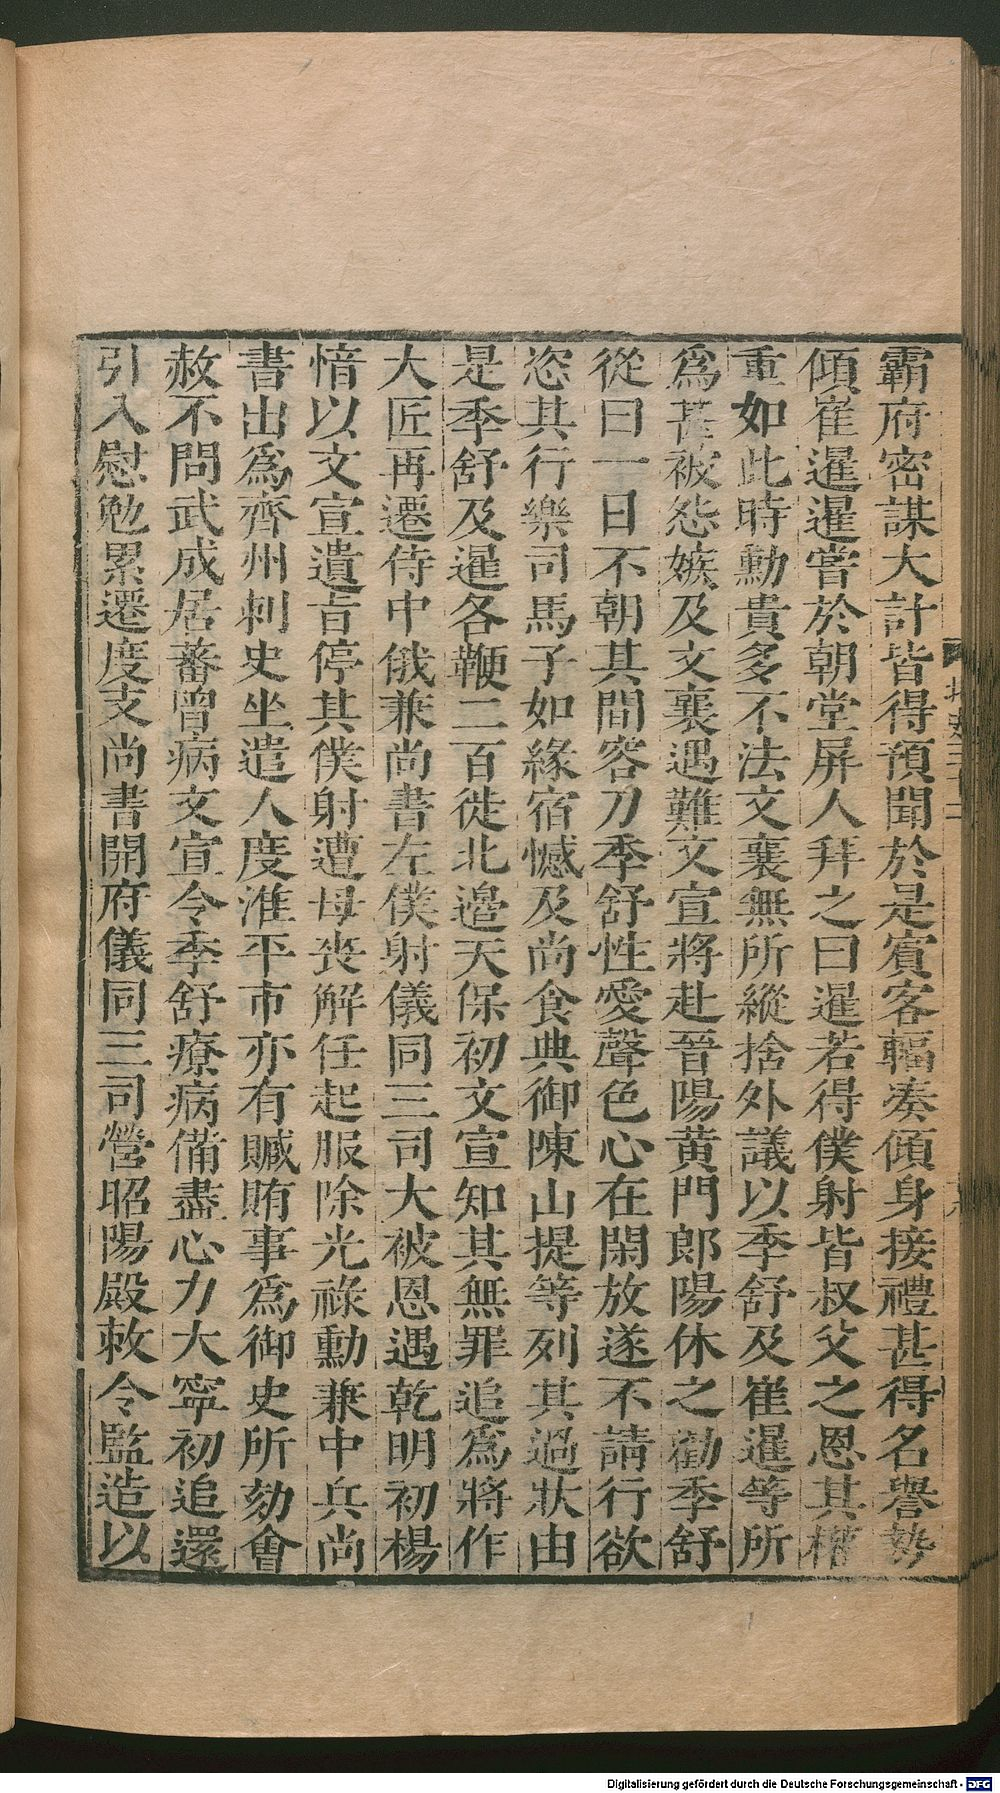 霸府密謀大計皆得預聞於是賓客輻湊傾身接禮甚得名譽勢
傾崔暹暹嘗於朝堂屏人拜之曰暹若得僕射皆叔父之恩其權
重如此時勳貴多不法文襄無所縱捨外議以季舒及崔暹等所
爲甚被怨嫉及文襄遇難文宣將赴晉陽黃門郎陽休之勸季舒
從曰一日不朝其間容刀季舒性愛聲色心在閑放遂不請行欲
恣其行樂司馬子如緣宿憾及尚食典御陳山提等列其過狀由
是季舒及暹各鞭二百徙北邊天保初文宣知其無罪追爲將作
大匠再遷侍中俄兼尚書左僕射儀同三司大被恩遇乾明初楊
愔以文宣遺旨停其僕射遭母喪解任起服除光祿勳兼中兵尚
書出爲齊州刺史坐遣人度淮平市亦有贓賄事爲御史所劾會
赦不問武成居蕃曾病文宣令季舒療病備盡心力大寧初追還
引入慰勉累遷度支尚書開府儀同三司營昭陽殿敕令監造以
Digitalisierung gefördert durch die Deutsche Forschungsgemeinschaft - DFG